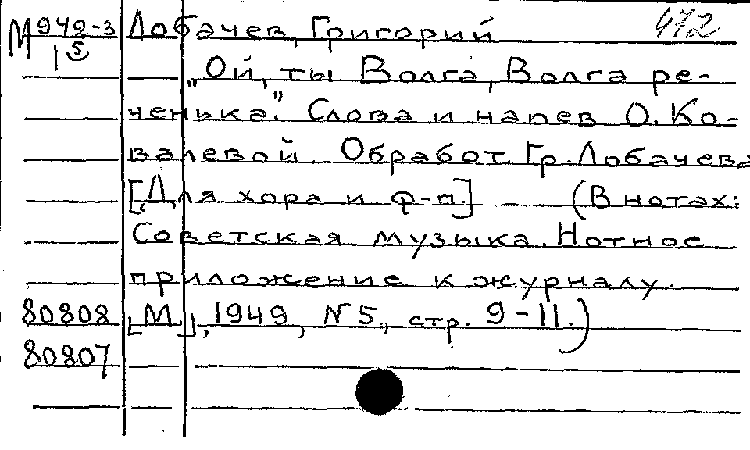 М 949-3 Лобачев, Григорий 472
5
„Ой, ты Волга, Волга ре-
ченька." Слова и напев О. Ко-
валевой. Обработ. Гр. Лобачева
[Для хора и ф-п.] – (В нотах:
Советская музыка. Нотное
приложение к журналу.
80808 [М.], 1949, N 5, стр. 9-11.)
80807